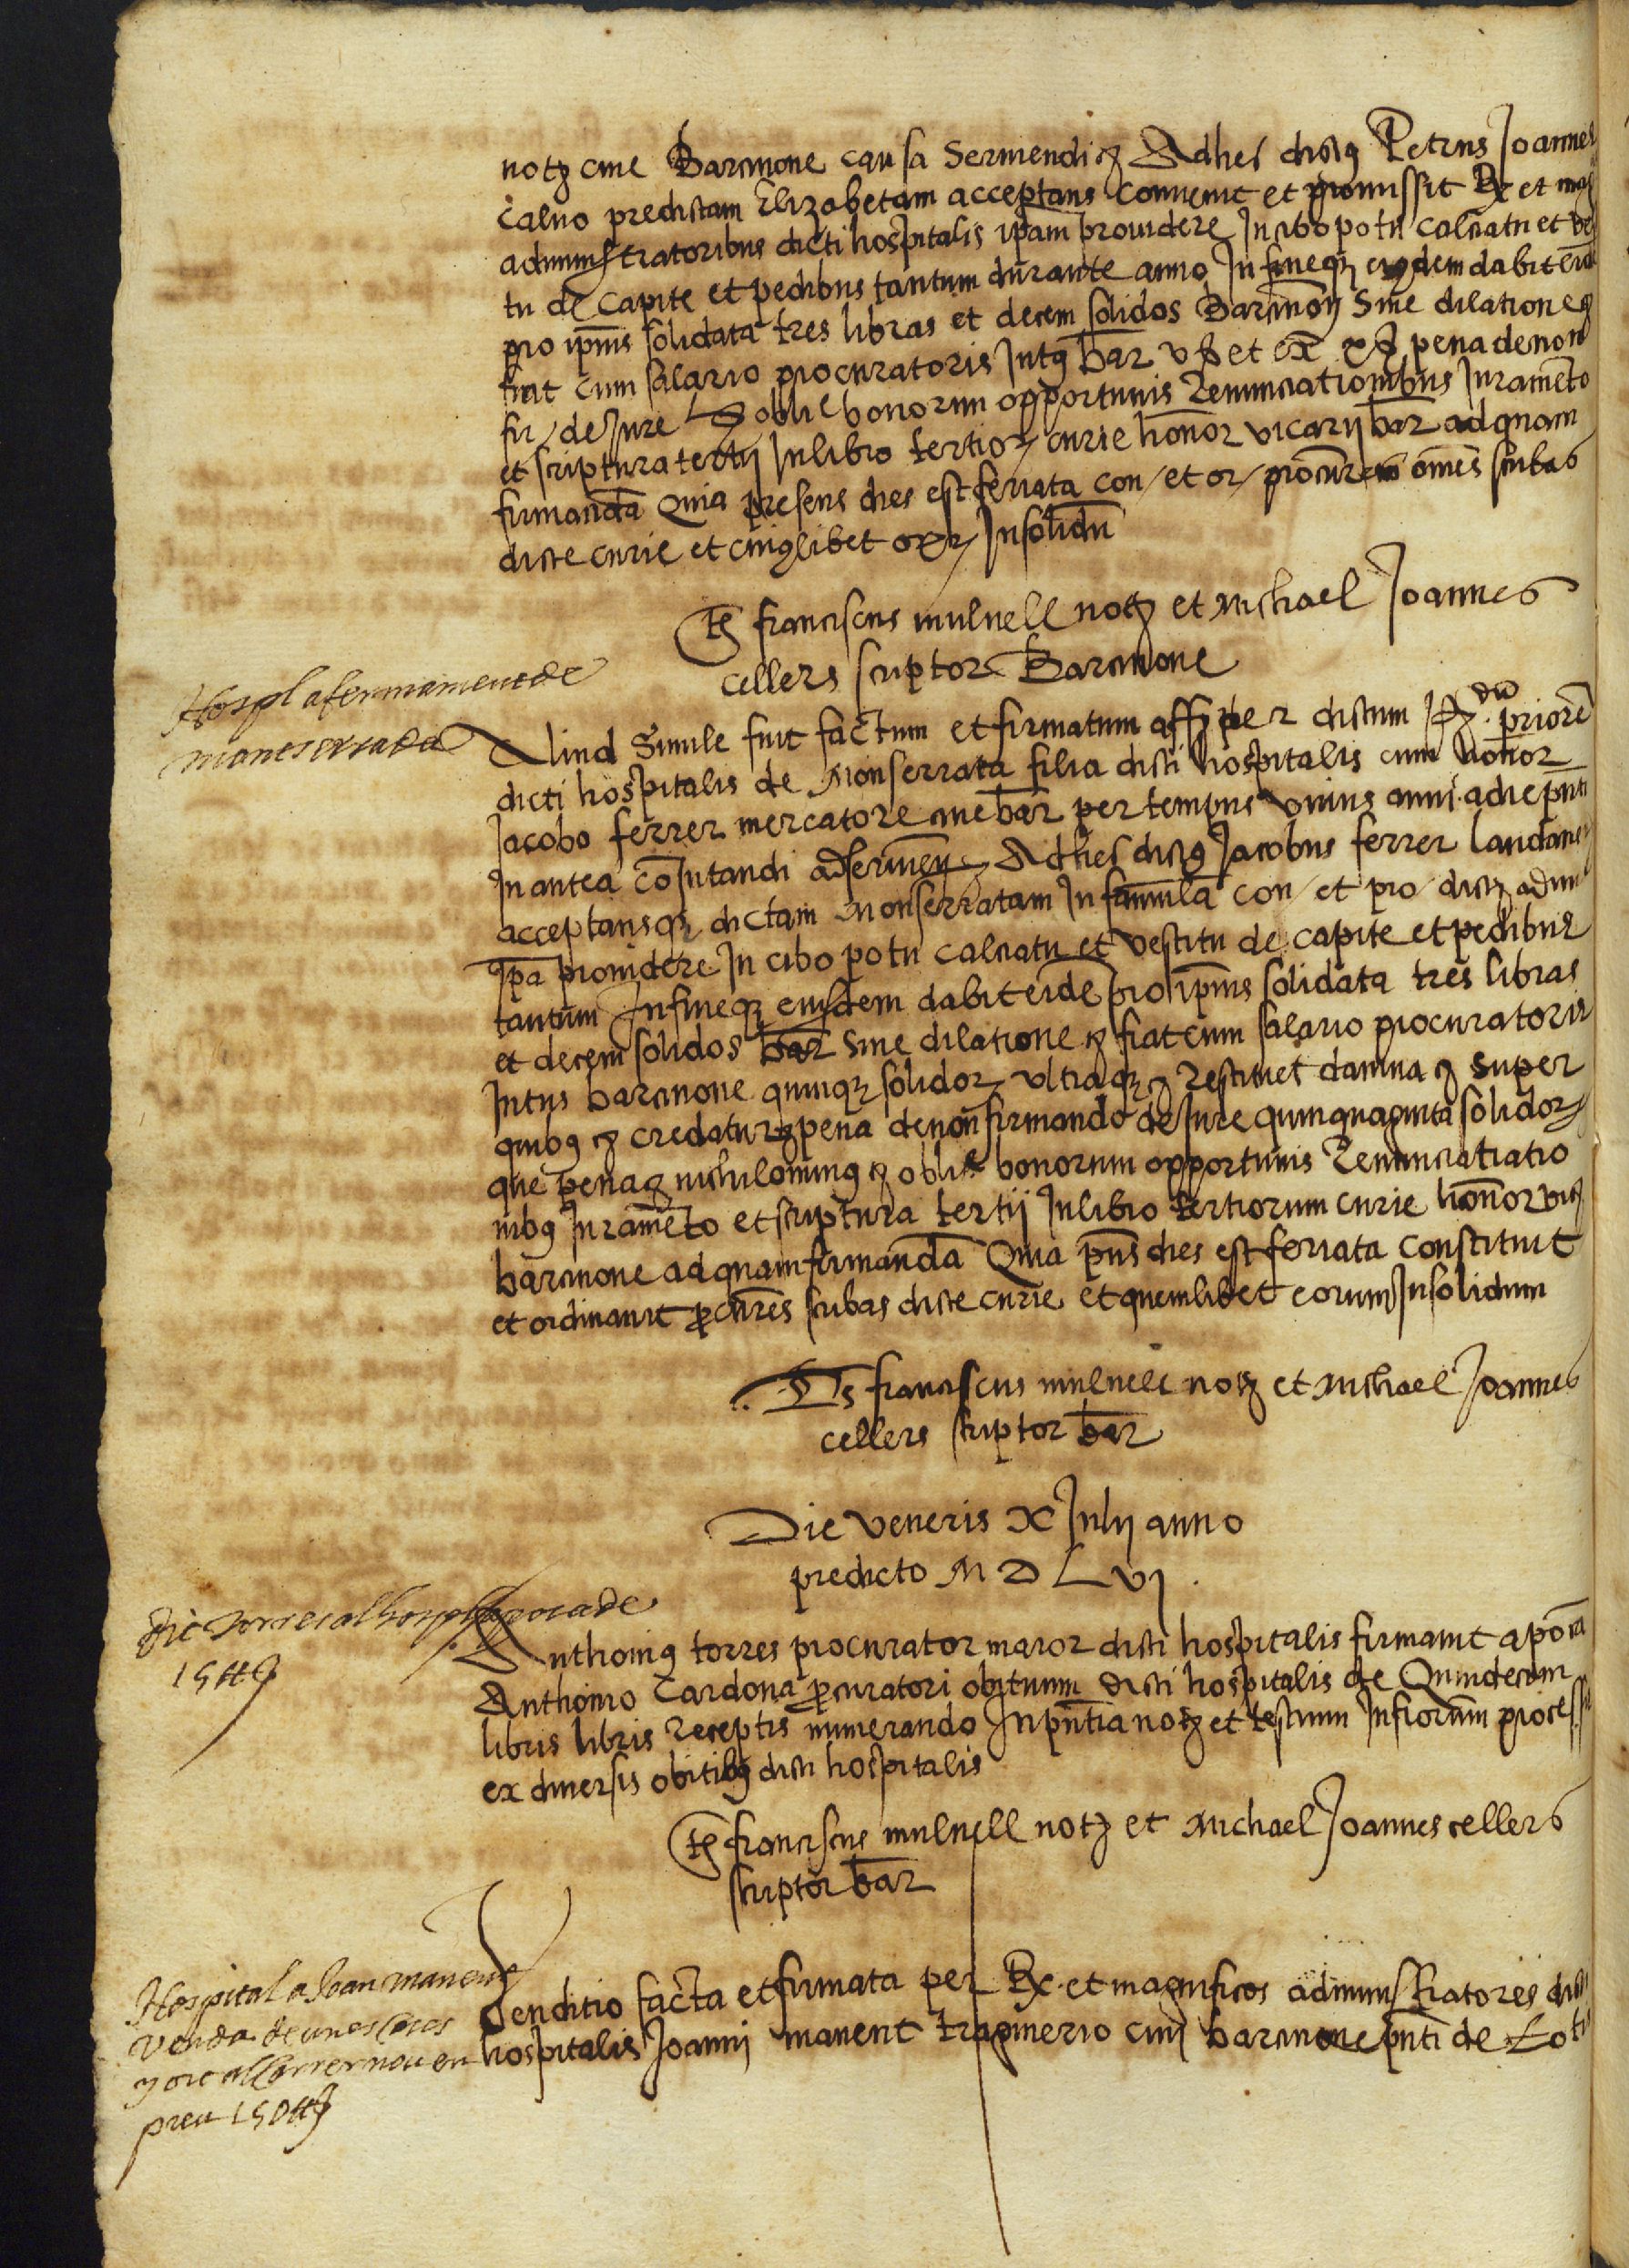 notȝ cive Barcinone causa serviendi ȝ Ad hec dictꝯ Petrus Joannes
calvo predictam Elizabetam acceptans convenit et promissit Rx et mag
administratoribus dicti hospitalis ipam providere in cibo potu calciatu et ves
tu de capite et pedibus tantum durante anno in fineqȝ eiusdem dabit eid
pro ipius solidata tres libras et decem solidos Barcinoñ sine dilatione ȝ
fiat cum salario procuratoris intꝯ bar v ß et ex pena de non
fir de jure oblic bonorum opportunis renunciationibus juramēto
et scriptura tertij in libro tertioȝ curie honor vicarij bar ad quam
firmandā Quia presens dies est feriata con et or procures omēs scribas
dicte curie et cuiꝯlibet oȝ insolidū
Tȝ franciscus mulnell notȝ et Michael Joannes
cellers scriptor Barcinone
Hospl afermament de
montserrada
Aliud simile fuit factum et firmatum per dictum dn̄m priorē
dicti hospitalis de Monserrata filia dicti hospitalis cum honor
Jacobo ferrer mercatore cive bar per tempus unius anni a die pnti
in antea cōputandi ad servieñ ȝ Ad hec dictꝯ Jacobus ferrer laudans
acceptansqȝ dictam Monserratam in famulā con et pro dictȝ admi
ipa providere in cibo potu calciatu et vestitu de capite et pedibus
tantum In fineqȝ eiusdem dabit eidē pro ipius solidata tres libras
et decem solidos bar sine dilatione ȝ fiat cum salario procuratoris
intus barcinone quinqȝ solidoȝ ultraqȝ ȝ restituet damna ȝ super
quibꝯ ȝ credatur ȝ pena de non firmando de jure quinquaginta solidoȝ
que pena ȝ nichilominꝯ ȝ oblic bonorum opportunis renunciatiatio
nibꝯ juramēto et scriptura tertij in libro tertiorum curie honor vicȝ
barcinone ad quam firmandā Quia pn̄s dies est feriata constituit
et ordinavit procures scribas dicte curie et quemlibet eorum insolidum
Ts franciscus mulnell notȝ et Michael Joannes
cellers scriptor bar
Die veneris X Julij anno
predicto M D L vj
de torres al hospl apoca de
15 ₶
Anthoniꝯ torres procurator maior dicti hospitalis firmavit apocā
Anthonio Cardona procuratori obituum dicti hospitalis de Quindecim
libris libris receptis numerando In pn̄tia notȝ et testium infrorum process
ex diversis obitibꝯ dicti hospitalis
Tȝ franciscus mulnell notȝ et Michael Joannes cellers
scriptor bar
Hospital a Joan manent
venda de unes cases
y ort al carrer nou en
preu 150 ₶
Venditio facta et firmata per Rx et magnificos administratores dicti
hospitalis Joanni manent traginerio civi barcinone pnti de toti